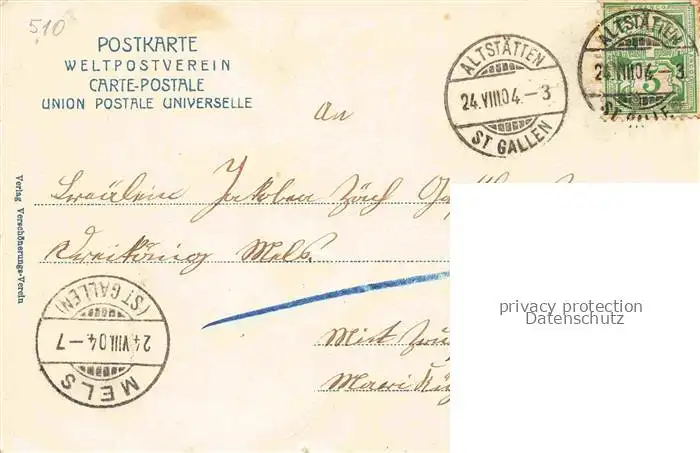 510
POSTKARTE
WELTPOSTVEREIN
CARTE-POSTALE
UNION POSTALE UNIVERSELLE
ALTSTÄTTEN
24.VIII.04.-3
ST GALLEN
ALTSTÄTTEN
24.VIII.04.-3
ST GALLEN
FRANCO
5
An
Fräulein Jakobea Zäch
Dreikönig Mels.
Verlag Verschönerungs-Verein
(ST GALLEN)
24.VIII.04-7
MELS
privacy protection
Datenschutz
Mist